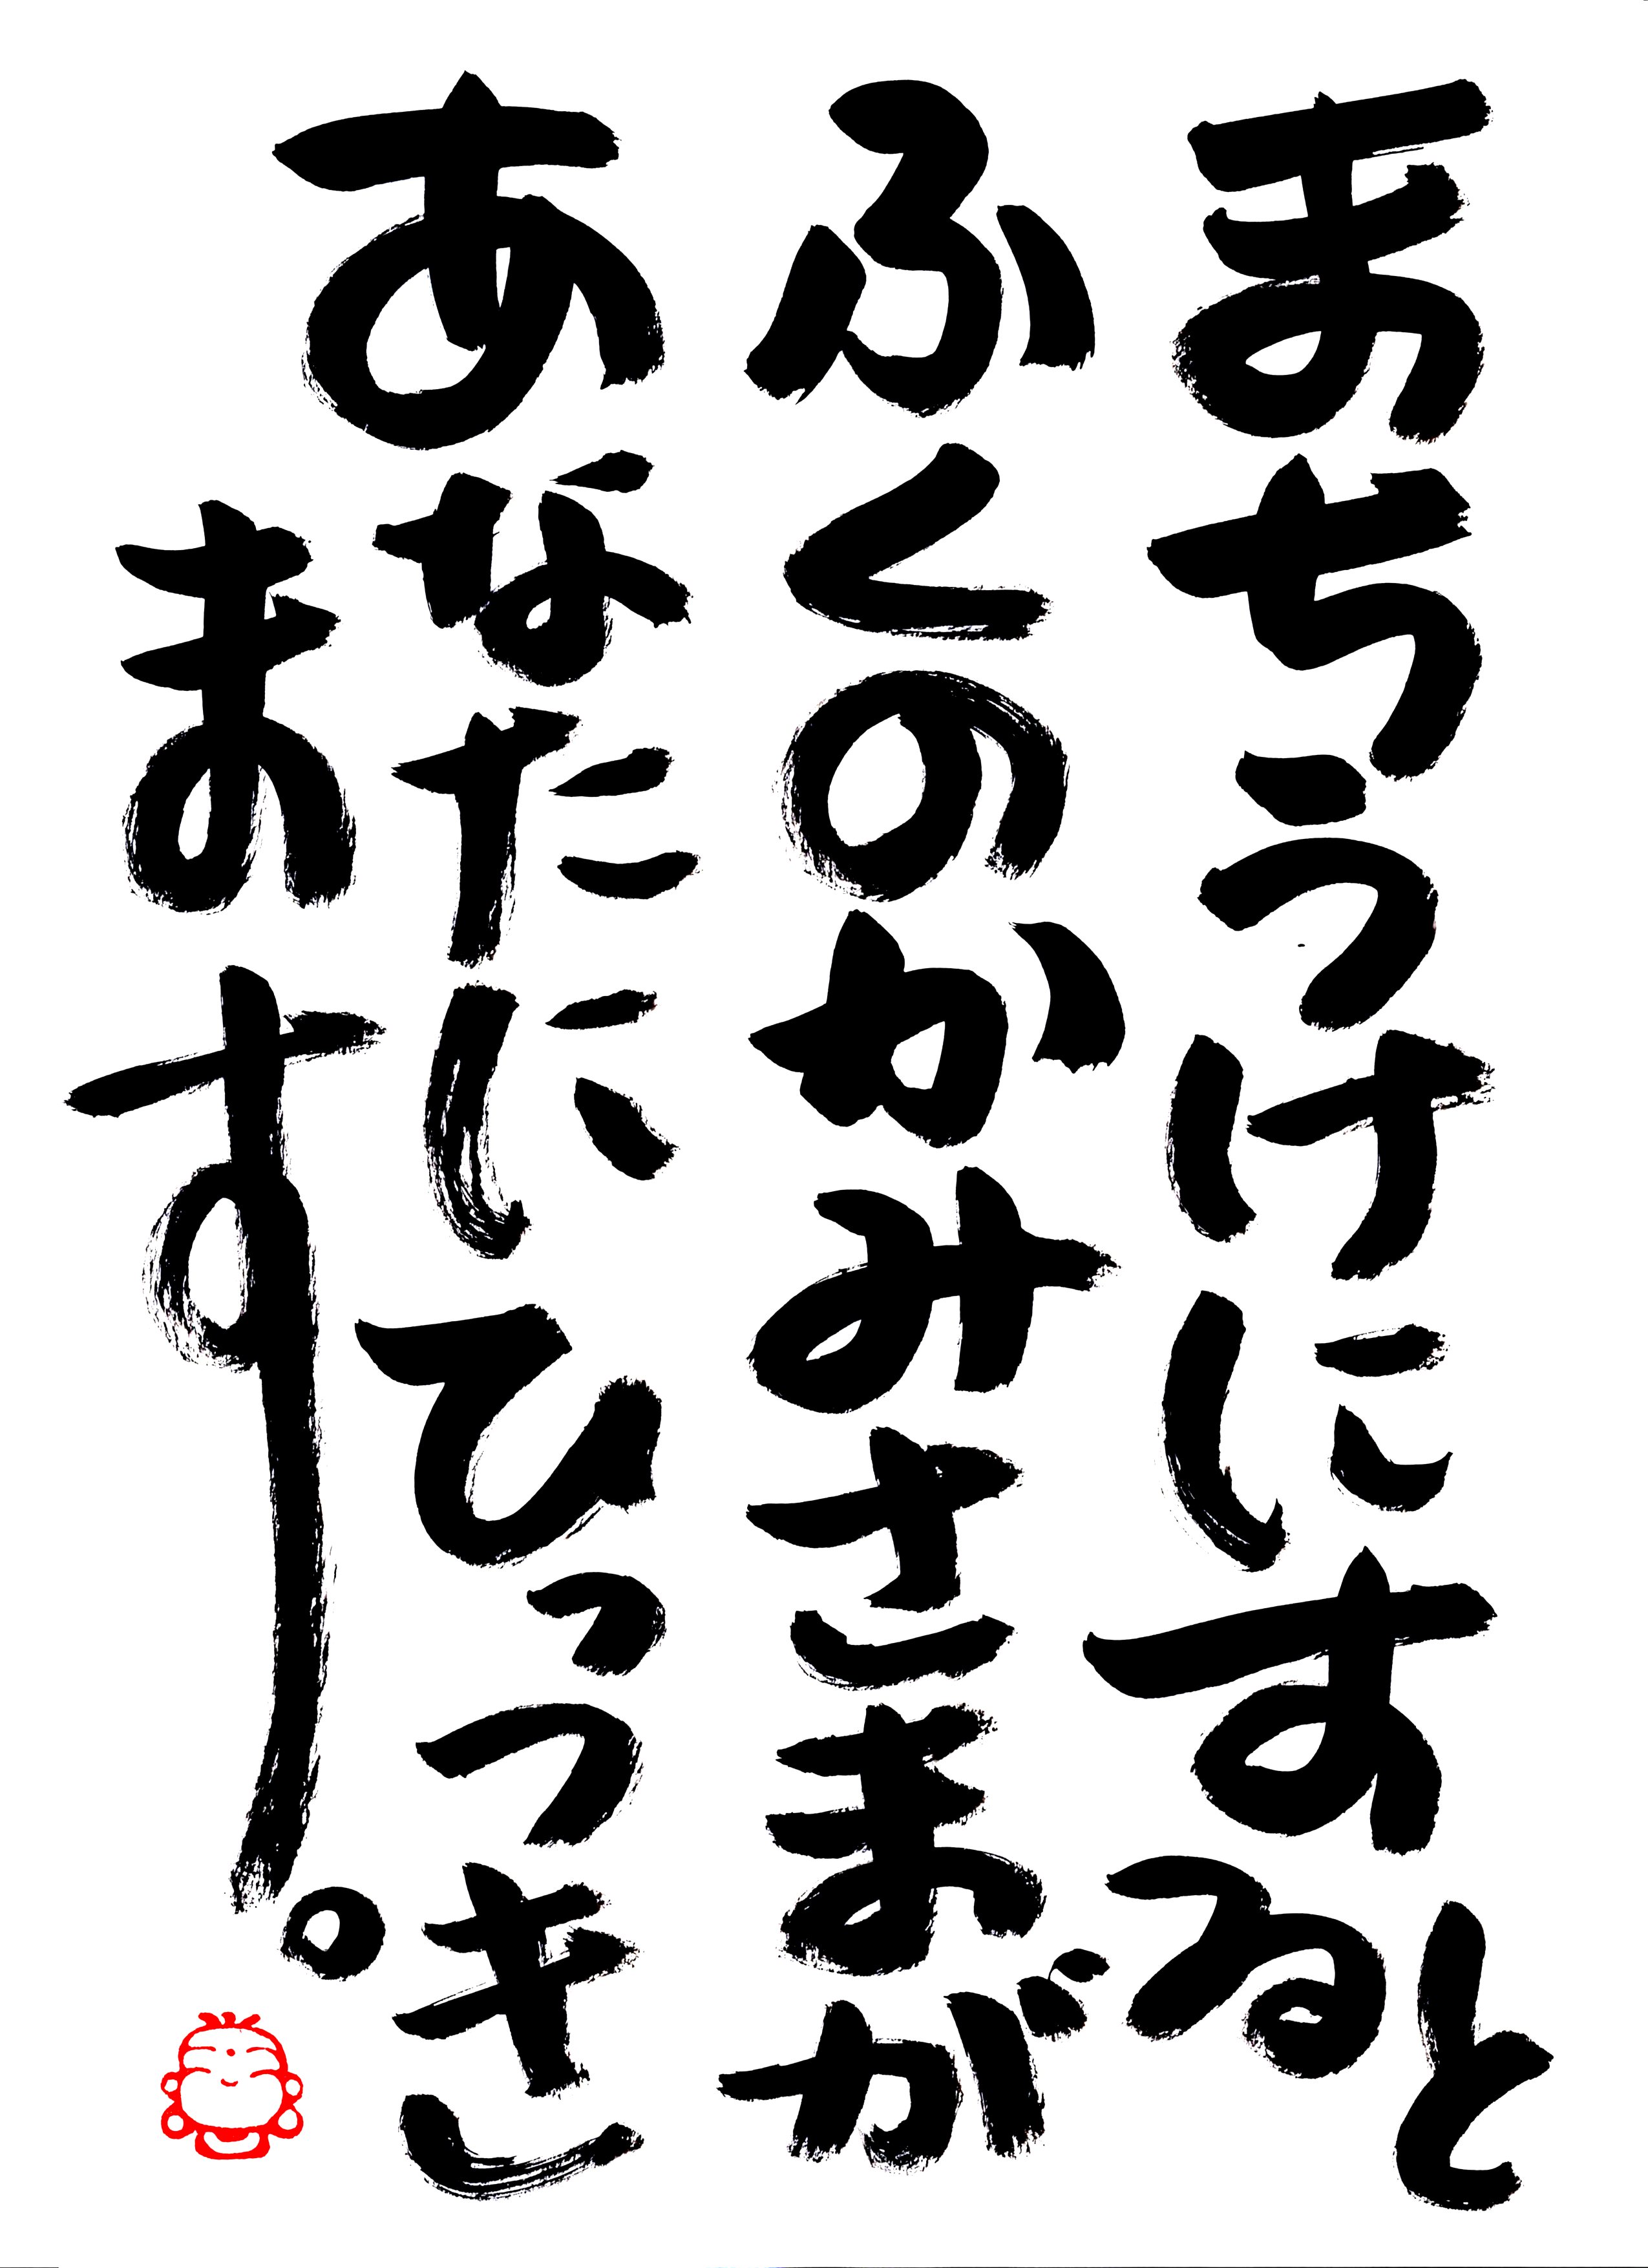 まちうけにすると
ふくのかみさまが
あなたにひっつき
ます。